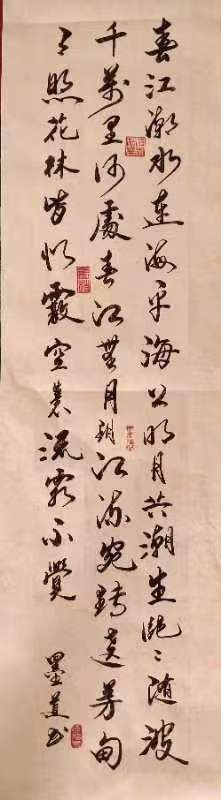 春江潮水連海平海上明月共潮生灩〻随波
千萬里何處春江無月明江流宛轉遶芳甸
月照花林皆似霰空裏流霜不覺
墨 书